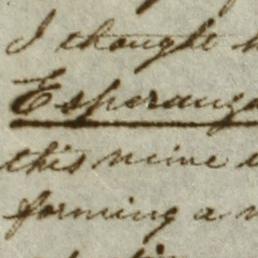 I thought
Esperanza
this mine
forming a